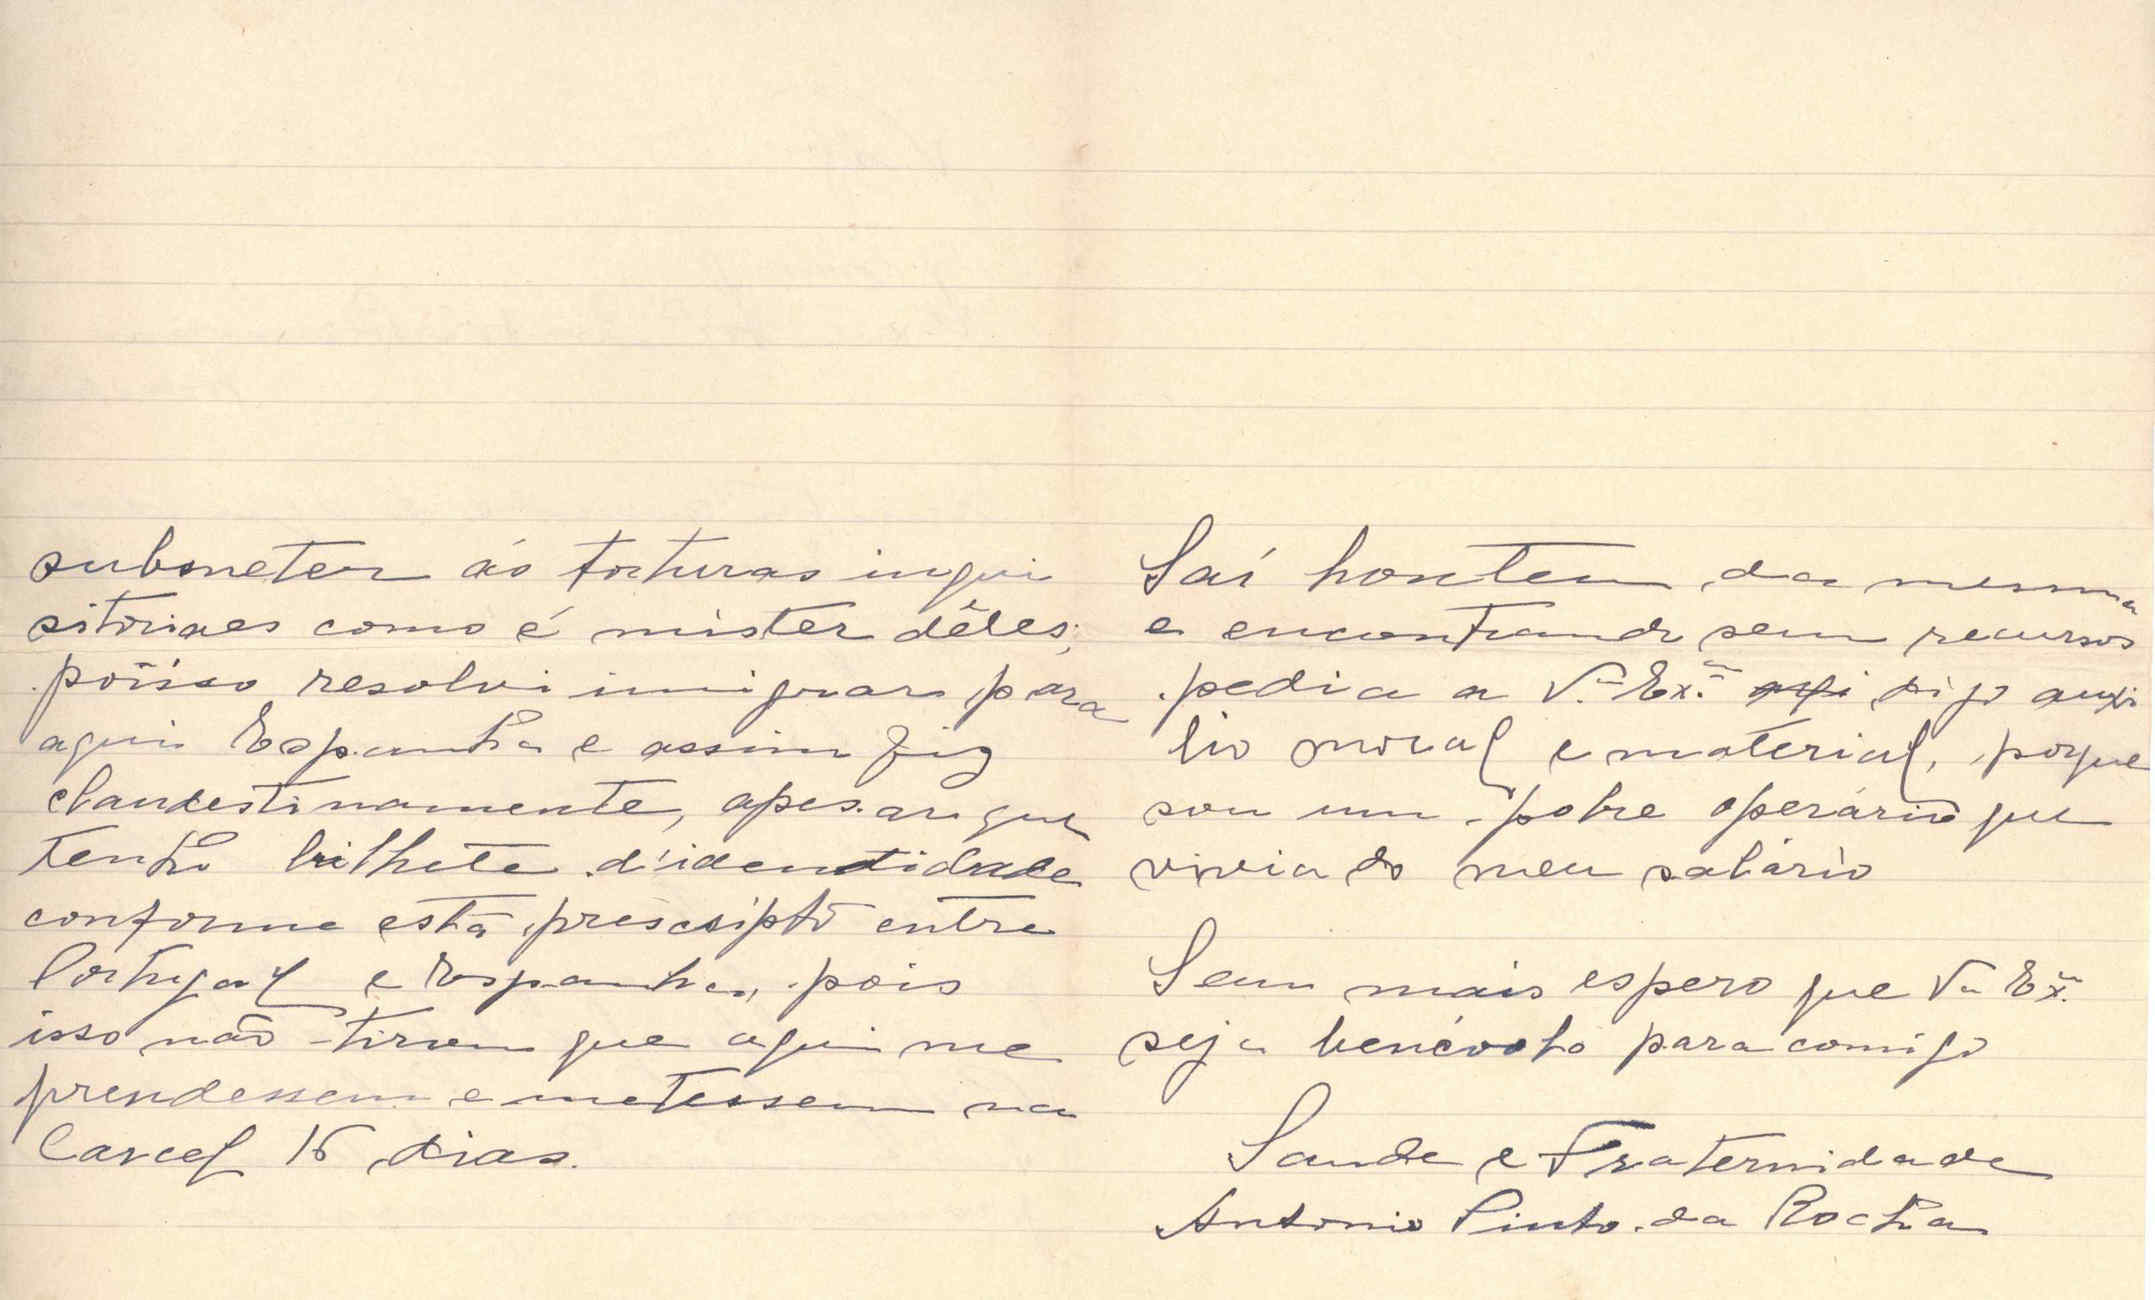 submeter ás torturas inqui
sitoriaes como é mister dêles;
poïsso resolvi imigrar para
aqui Espanha e assim fiz
clandestinamente, apesar que
tenho bilhete d'identidade
conforme está prescripto entre
Portugal e Espanha, pois
isso não tirou que aqui me
prendessem e metessem na
Carcel 15 dias.
Saí hontem da mesma
e encontrando sem recursos
pedia a V.ª Ex.ª digo auxi
lio moral e material, porque
sou um pobre operário que
vivia do meu salário
Sem mais espero que V.ª Ex.ª
seja benévolo para comigo
Saude e Fraternidade
Antonio Pinto da Rocha